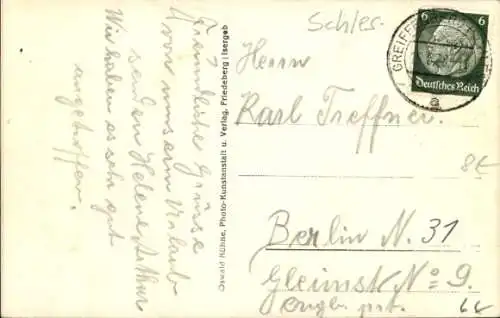 Freundliche Grüsse
von unserm Urlaub
senden Helene Arthur
Wir haben es sehr gut
angetroffen.
Oswald Kühne, Photo-Kunstanstalt u. Verlag, Friedeberg Isergeb
Schles.
6 6
Deutsches Reich
a
Herrn
Karl Treffner.
Berlin N. 31
Gleimst No 9.